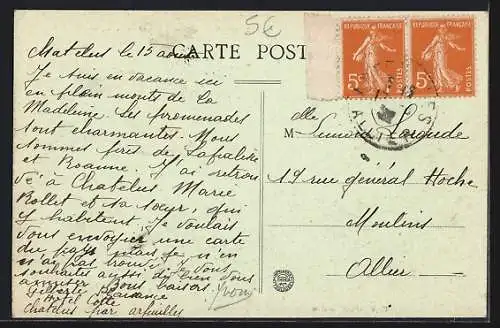 5€
CARTE POST
REPUBLIQUE FRANÇAISE
REPUBLIQUE FRANÇAISE
5c
POSTES
5c
POSTES
Chatelus le 15 août
Je suis en vacance ici
en plein monts de La
Madeleine. Les promenades
sont charmantes. Nous
sommes près de Lapalisse
et Roanne. J'ai retrou
vé à Chatelus Marie
Bollet et sa soeur, qui
y habitent. Je voulais
vous envoyer une carte
du pays mais je n'en
n'ai pas trouvé. Je vous
souhaite aussi de bien vous
amuser. Bons baisers.
Yvonne
Hotel Cotte
Chatelus par arfeuilles
Melle
19 rue général Hoche
Moulins
Allier